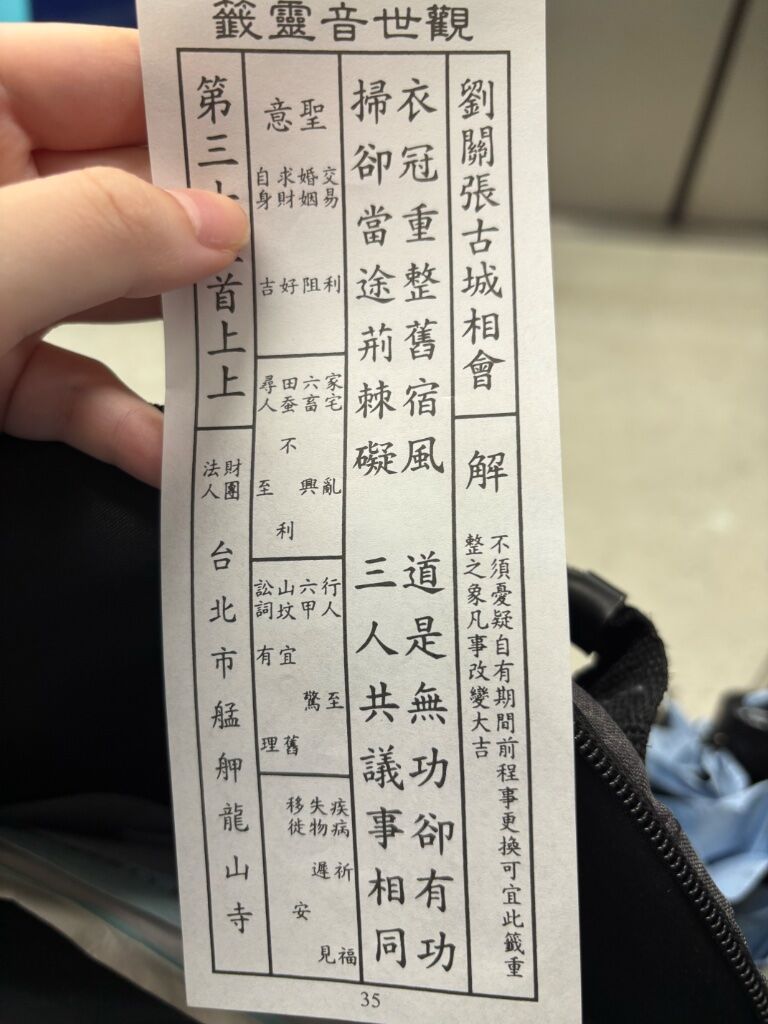 觀世音靈籤
劉關張古城相會
解
不須憂疑自有期間前程事更換可宜此籤重
整之象凡事改變大吉
衣冠重整舊宿風 道是無功卻有功
掃卻當途荊棘礙 三人共議事相同
聖意
交易 利
婚姻 阻
求財 好
自身 吉
家宅 亂
六畜 興
田蚕 不利
尋人 至
行人 至
六甲 驚
山坟 宜舊
訟詞 有理
疾病 祈福
失物 遲見
移徙 安
第三十 首上上
財團法人
台北市艋舺龍山寺
35